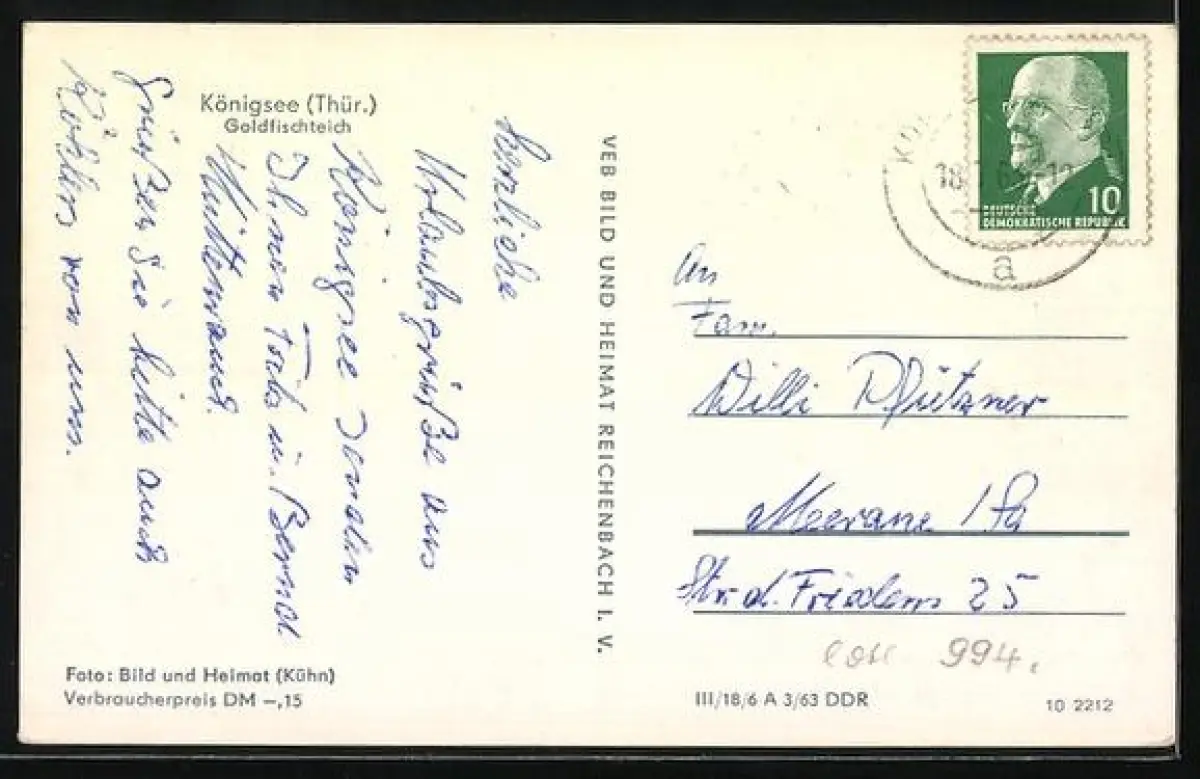 Königsee (Thür.)
Goldfischteich
Herzliche
Urlaubsgrüße aus
Königsee senden
Ihnen Fam. u. Bernd
Hüttenrauch.
Grüßen Sie bitte auch
von uns.
VEB BILD UND HEIMAT REICHENBACH I. V.
Foto: Bild und Heimat (Kühn)
Verbraucherpreis DM –,15
10
DEUTSCHE
DEMOKRATISCHE REPUBLIK
a
An
Fam.
Willi Pfützner
Meerane / Sa
Str. d. Friedens 25
994.
III/18/6 A 3/63 DDR
10 2212